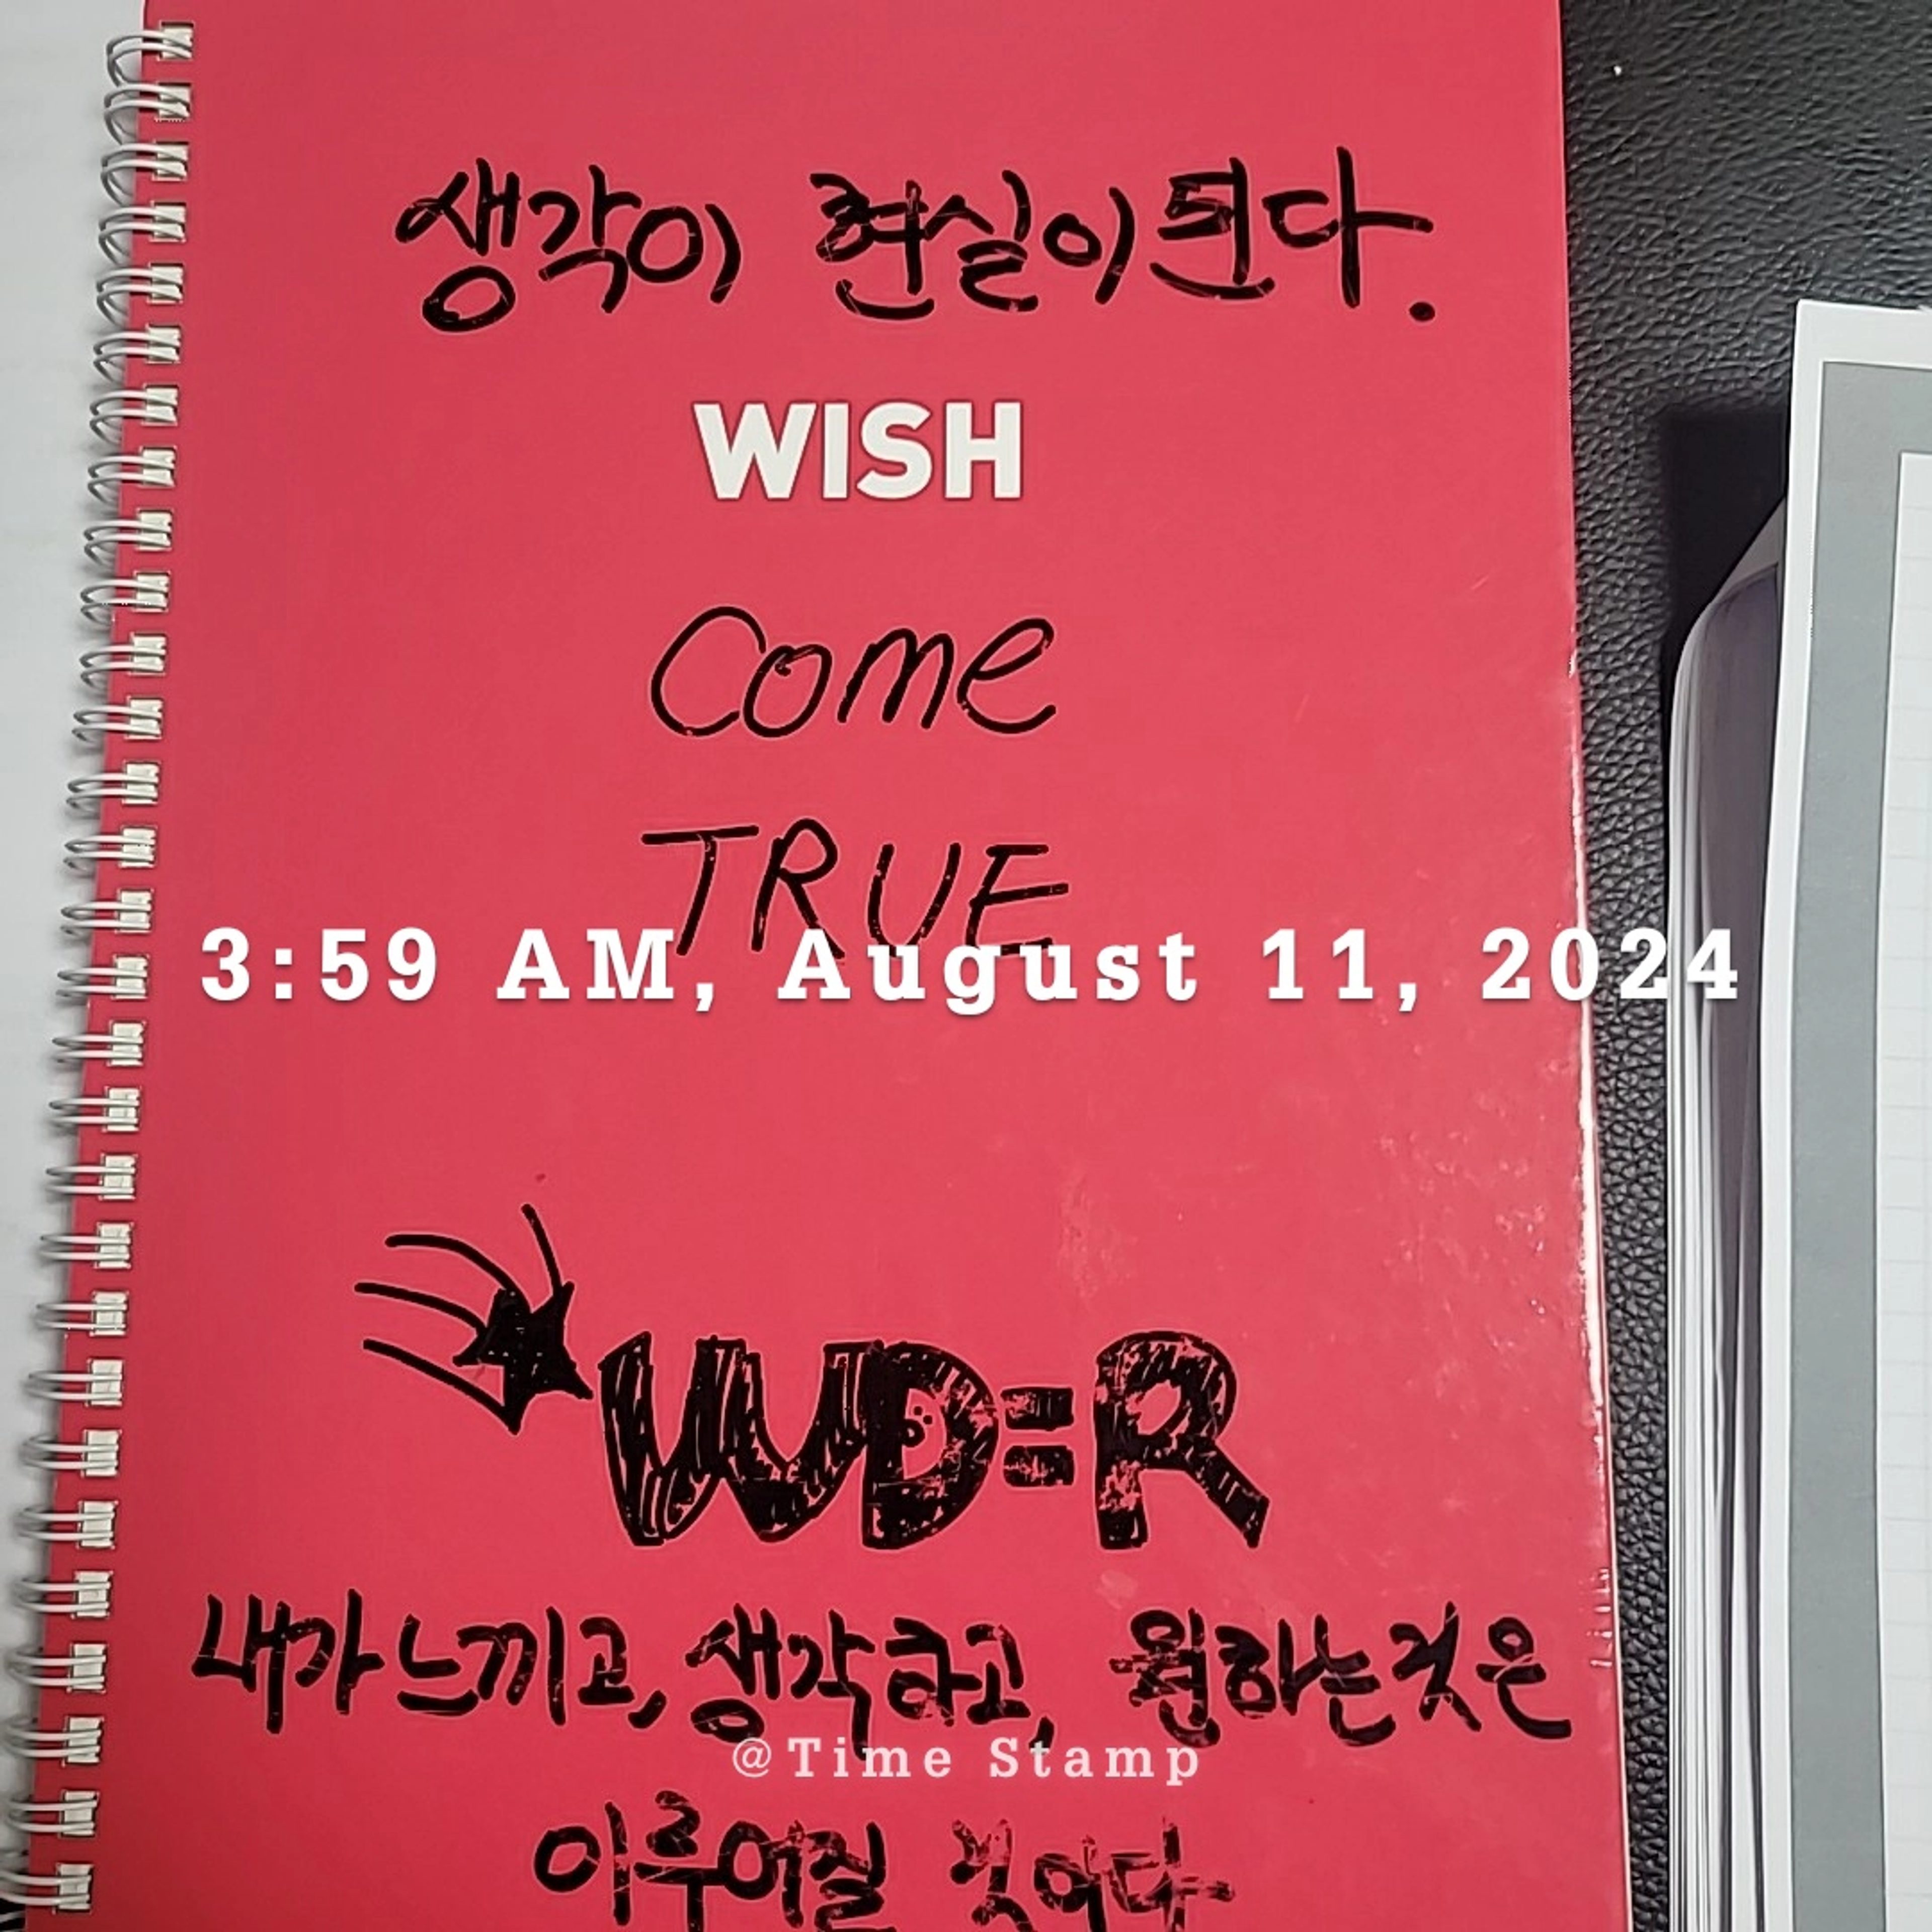 생각이 현실이 된다.
WISH
Come
TRUE
3:59 AM, August 11, 2024
WD=R
내가 느끼고, 생각하고, 원하는 것은
@Time Stamp
이루어질 것이다